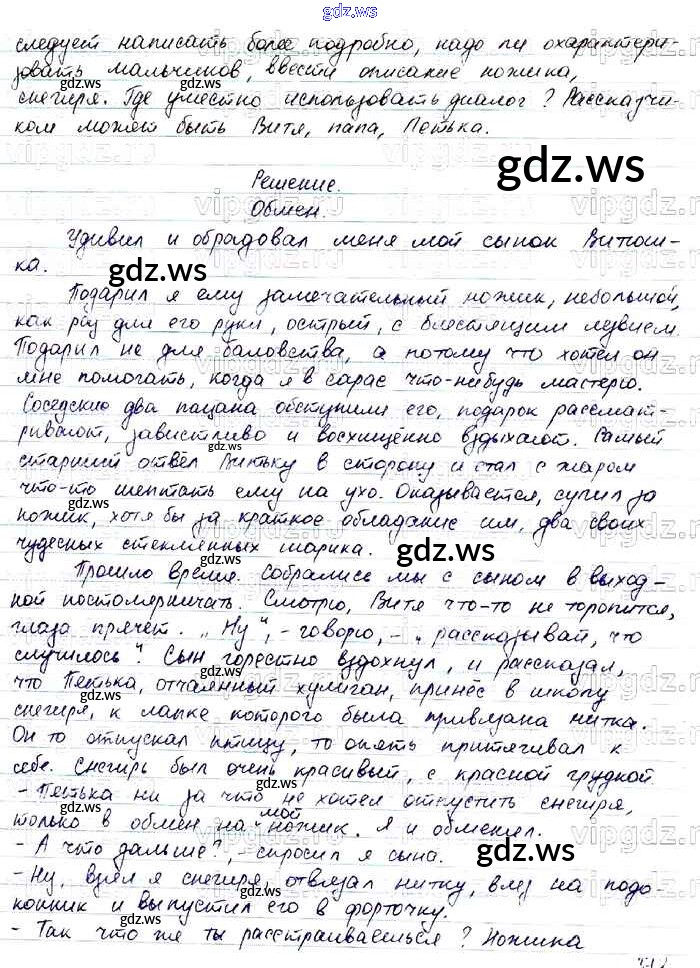 gdz.ws
следует написать более подробно, надо ли охарактери-
зовать мальчиков, ввести описание ножика,
снегиря. Где уместно использовать диалог? Рассказчи-
ком может быть Витя, папа, Петька.
gdz.ws
Решение.
Обмен.
Удивил и обрадовал меня мой сынок Витюш-
ка.
gdz.ws
Подарил я ему замечательный ножик, небольшой,
как раз для его руки, острый, с блестящим лезвием.
Подарил не для баловства, а потому что хотел он
мне помогать, когда я в сарае что-нибудь мастерю.
Соседские два пацана обступили его, подарок рассмат-
ривают, завистливо и восхищённо вздыхают. Самый
старший отвёл Витьку в сторону и стал с жаром
gdz.ws
что-то шептать ему на ухо. Оказывается, сулил за
ножик, хотя бы за краткое обладание им, два своих
чудесных стеклянных шарика.
gdz.ws
Прошло время. Собрались мы с сыном в выход-
ной постолярничать. Смотрю, Витя что-то не торопится,
глаза прячет. „Ну", - говорю, - „рассказывай, что
случилось". Сын горестно вздохнул, и рассказал,
что Петька, отчаянный хулиган, принёс в школу
gdz.ws
снегиря, к лапке которого была привязана нитка.
Он то отпускал птицу, то опять притягивал к
себе. Снегирь был очень красивый, с красной грудкой.
- Петька ни за что не хотел отпустить снегиря,
gdz.ws
только в обмен на мой ножик. Я и обменял.
- А что дальше?, - спросил я сына.
gdz.ws
- Ну, взял я снегиря, отвязал нитку, влез на подо-
конник и выпустил его в форточку.
gdz.ws
- Так что же ты расстраиваешься? Ножика
vipgdz.ws